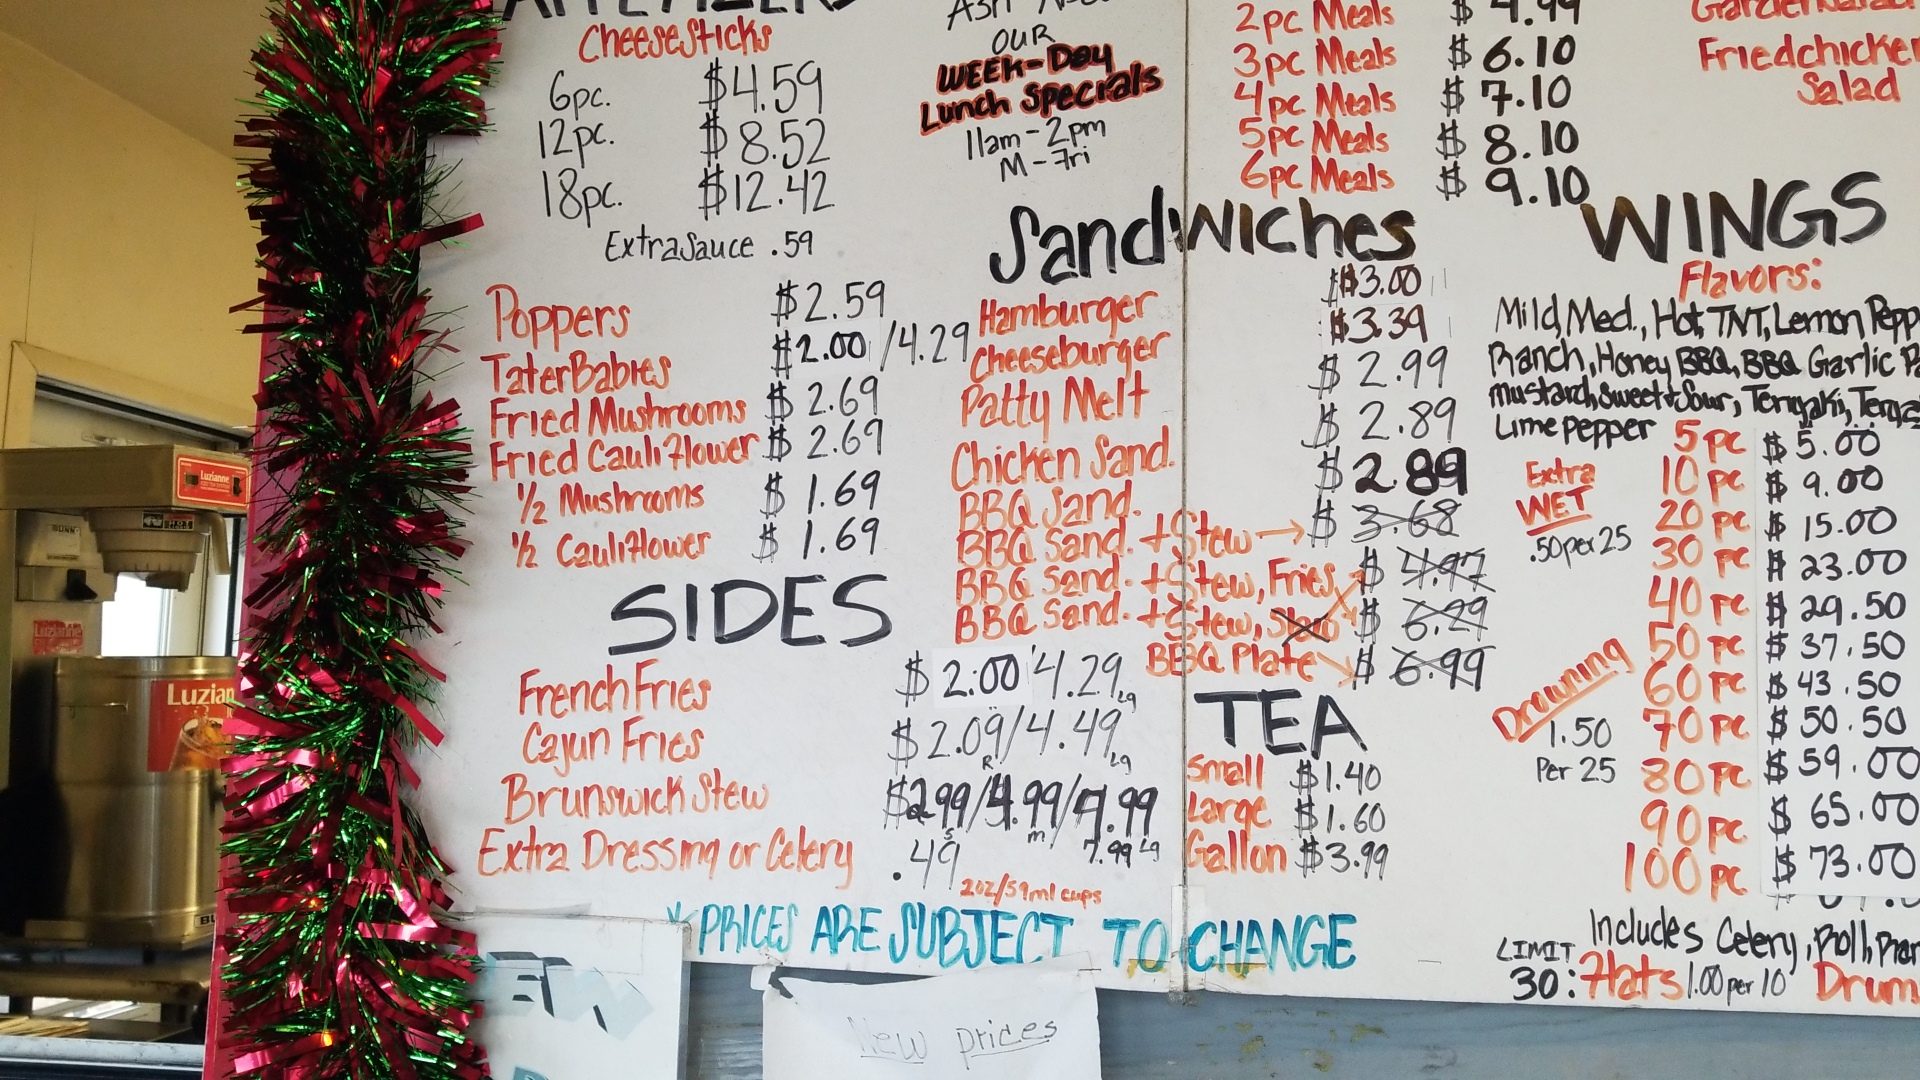 CheeseSticks
6pc. $4.59
12pc. $8.52
18pc. $12.42
Extra Sauce .59
Poppers $2.59
TaterBabies $2.00/4.29
Fried Mushrooms $2.69
Fried Cauliflower $2.69
1/2 Mushrooms $1.69
1/2 Cauliflower $1.69
SIDES
French Fries $2.00/4.29 Lg
Cajun Fries $2.09/4.49 R Lg
Brunswick Stew $2.99/4.99/7.99
S m 7.99 Lg
Extra Dressing or Celery .49
2oz/59ml cups
*PRICES ARE SUBJECT TO CHANGE
New prices
OUR
WEEK-DAY
Lunch Specials
11am-2pm
M-Fri
2pc Meals $4.99
3pc Meals $6.10
4pc Meals $7.10
5pc Meals $8.10
6pc Meals $9.10
Sandwiches
Hamburger $3.00
Cheeseburger $3.39
Patty Melt $2.99
Chicken Sand. $2.89
BBQ Sand. $2.89
BBQ Sand. + Stew $3.68
BBQ Sand. + Stew, Fries $4.97
BBQ Sand. + Stew, Slaw $6.29
BBQ Plate $6.99
TEA
Small $1.40
Large $1.60
Gallon $3.99
Fried chicken
Salad
WINGS
Flavors:
Mild, Med., Hot, TNT, Lemon
Ranch, Honey BBQ, BBQ Garlic
Mustard, Sweet+Sour, Teriyaki,
Lime pepper
5 pc $5.00
10 pc $9.00
20 pc $15.00
30 pc $23.00
40 pc $29.50
50 pc $37.50
60 pc $43.50
70 pc $50.50
80 pc $59.00
90 pc $65.00
100 pc $73.00
Extra
WET
.50 per 25
Drowning
1.50
Per 25
Includes Celery, Roll,
LIMIT
30: Flats 1.00 per 10
Luzianne
BUNN
Luzianne